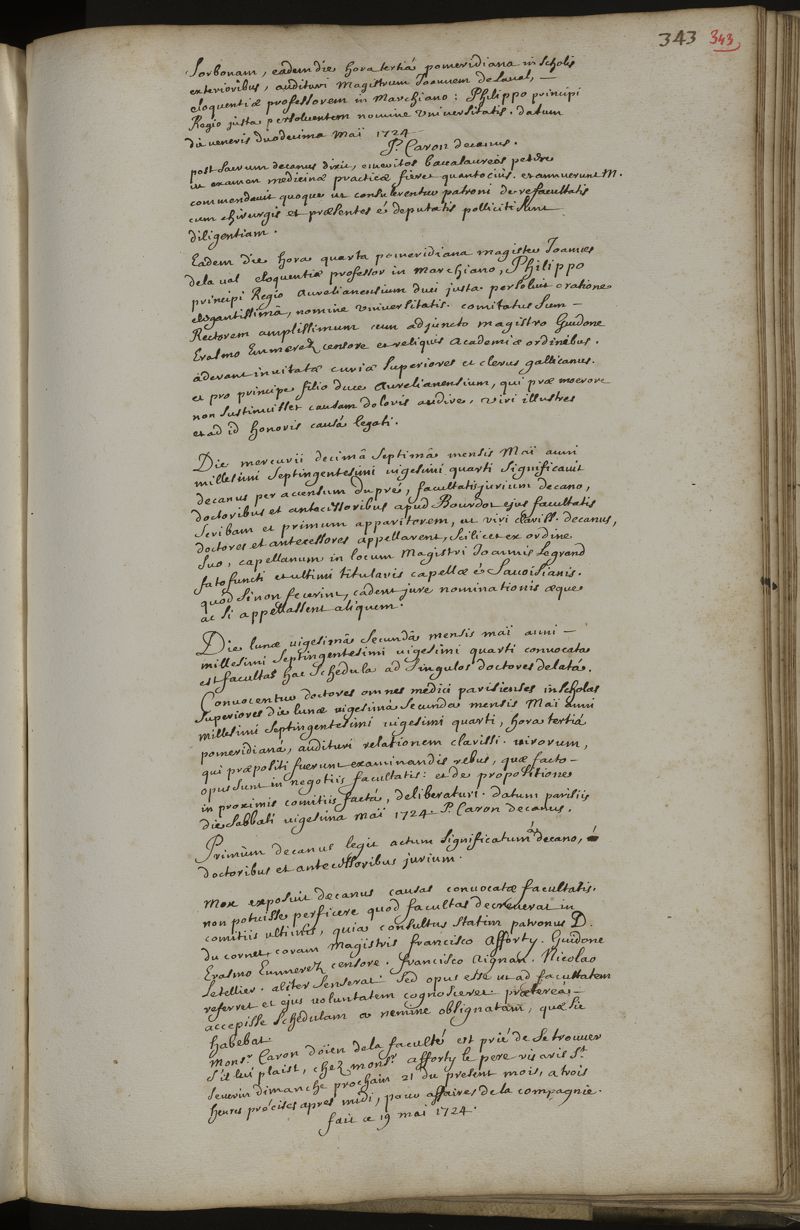 343 343
Sorbonam, eadem die hora tertiâ pomeridiana in scholis
exterioribus, audituri Magistrum Joannem de Laval, —
eloquentiæ professorem in Marchiano: Philippo principi
Regio justa persoluentem nomine Universitatis. datum
die veneris duodecima Maï 1724
P. Caron decanus.
post sacrum decanus dixit, emeritos baccalaureos petere
ut examen medicinæ practicæ fieret quantocius. et annuerunt M.
commendavit quoque ut consulerentur patroni de re facultatis
cum chirurgis et præsentes è deputatis polliciti sunt
diligentiam.
Eadem die hora quarta pomeridiana magister Joannes
de la val eloquentiæ professor in Marchiano, Philippo
principi Regio Aurelianensium duci justa persoluit oratione
elegantissimâ, nomine Universitatis. comitatus sum —
Rectorem amplissimum cum adjuncto magistro Guidone
Erasmo Emmerez censore et reliquis Academiæ ordinibus.
aderant invitatæ curiæ superiores et clerus gallicanus.
et pro principe filio duce Aurelianensium, qui præ moerore
non sustinuisset causam doloris audire, viri illustres
et ad id honoris causâ legati.
Die mercurii decimâ septimâ mensis Maï anni
millesimi septingentesimi vigesimi quarti significavit
decanus per accensum dupré, facultatis jurium decano,
doctoribus et antecessoribus apud Bourdot ejus facultatis
scribam et primum apparitorem, ut viri clariss. decanus,
doctores et antecessores appellarent, scilicet ex ordine
suo, capellanum in locum Magistri Joannis Legrand
fato functi et ultimi titularis capellæ è Savoisianis.
quod si non fecerint, cadent jure nominationis æque
ac si appellassent aliquem.
Die lunæ vigesimâ secundâ mensis maï anni —
millesimi septingentesimi vigesimi quarti convocata
est facultas hac schedula ad singulos doctores delatâ.
Convocentur doctores omnes medici parisienses in scholas
superiores die lunæ vigesimâ secunda mensis Maï anni
millesimi septingentesimi vigesimi quarti, hora tertiâ
pomeridianâ, audituri relationem clarissi. virorum,
qui præpositi fuerunt examinandis rebus, quæ facto —
opus sunt in negotiis facultatis: et de propositione
in proximis comitiis factâ, deliberaturi. datum parisiis
die sabbati vigesima maï 1724 P. Caron decanus.
Primùm decanus legit actum significatum decano,
doctoribus et antecessoribus jurium.
Mox exposuit decanus causas convocatæ facultatis.
non potuisse perficere quod facultas decreverat in
comitiis ultimis, quia consultus statim patronus D.
du cornet, coram Magistris francisco Afforty. Guidone
Erasmo Emmerez censore. francisco Aignan. Nicolao
Letellier. aliter senserat. sed opus esse ut ad facultatem
referret et ejus voluntatem cognosceret. prætereà —
accepisse schedulam a nemine obsignatam, quæ sic
habebat.
Monsr. Caron doïen de la faculté est prié de se trouver
s'il lui plaist, chez monsr. afforty le pere vis avis St.
Severin dimanche prochain 21 du present mois, a trois
heures précises apres midi, pour affaires de la compagnie.
fait ce 19 mai 1724.